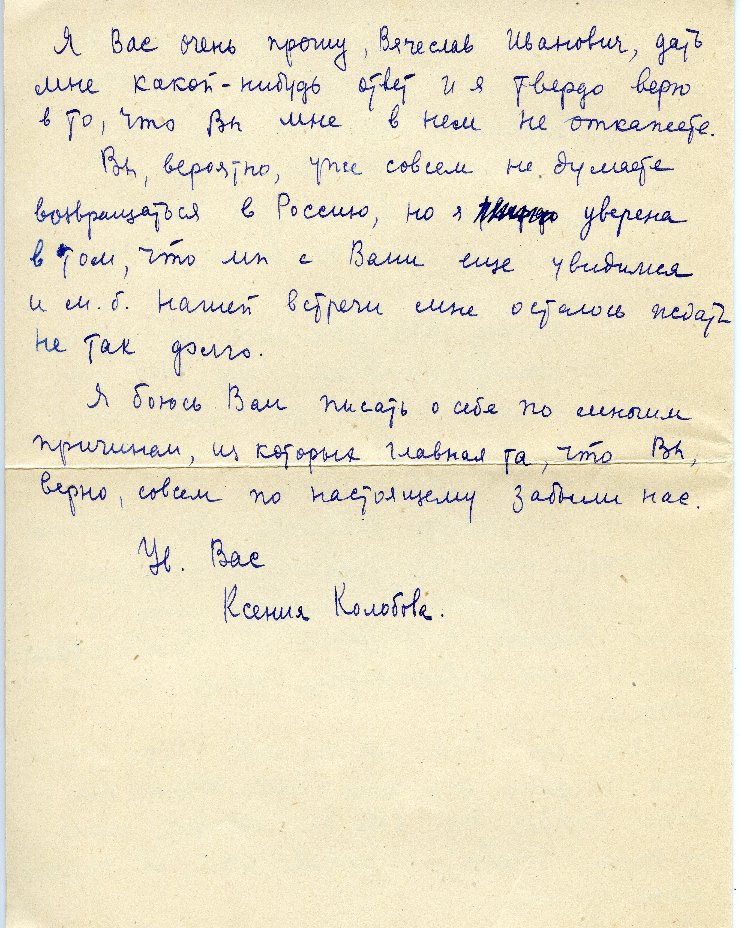 Я Вас очень прошу, Вячеслав Иванович, дать
мне какой-нибудь ответ и я твердо верю
в то, что Вы мне в нем не откажете.
Вы, вероятно, уже совсем не думаете
возвращаться в Россию, но я уверена
в том, что мы с Вами еще увидимся
и м.б. нашей встречи мне осталось ждать
не так долго.
Я боюсь Вам писать о себе по многим
причинам, из которых главная та, что Вы,
верно, совсем по настоящему забыли нас.
Ув. Вас
Ксения Колобова.